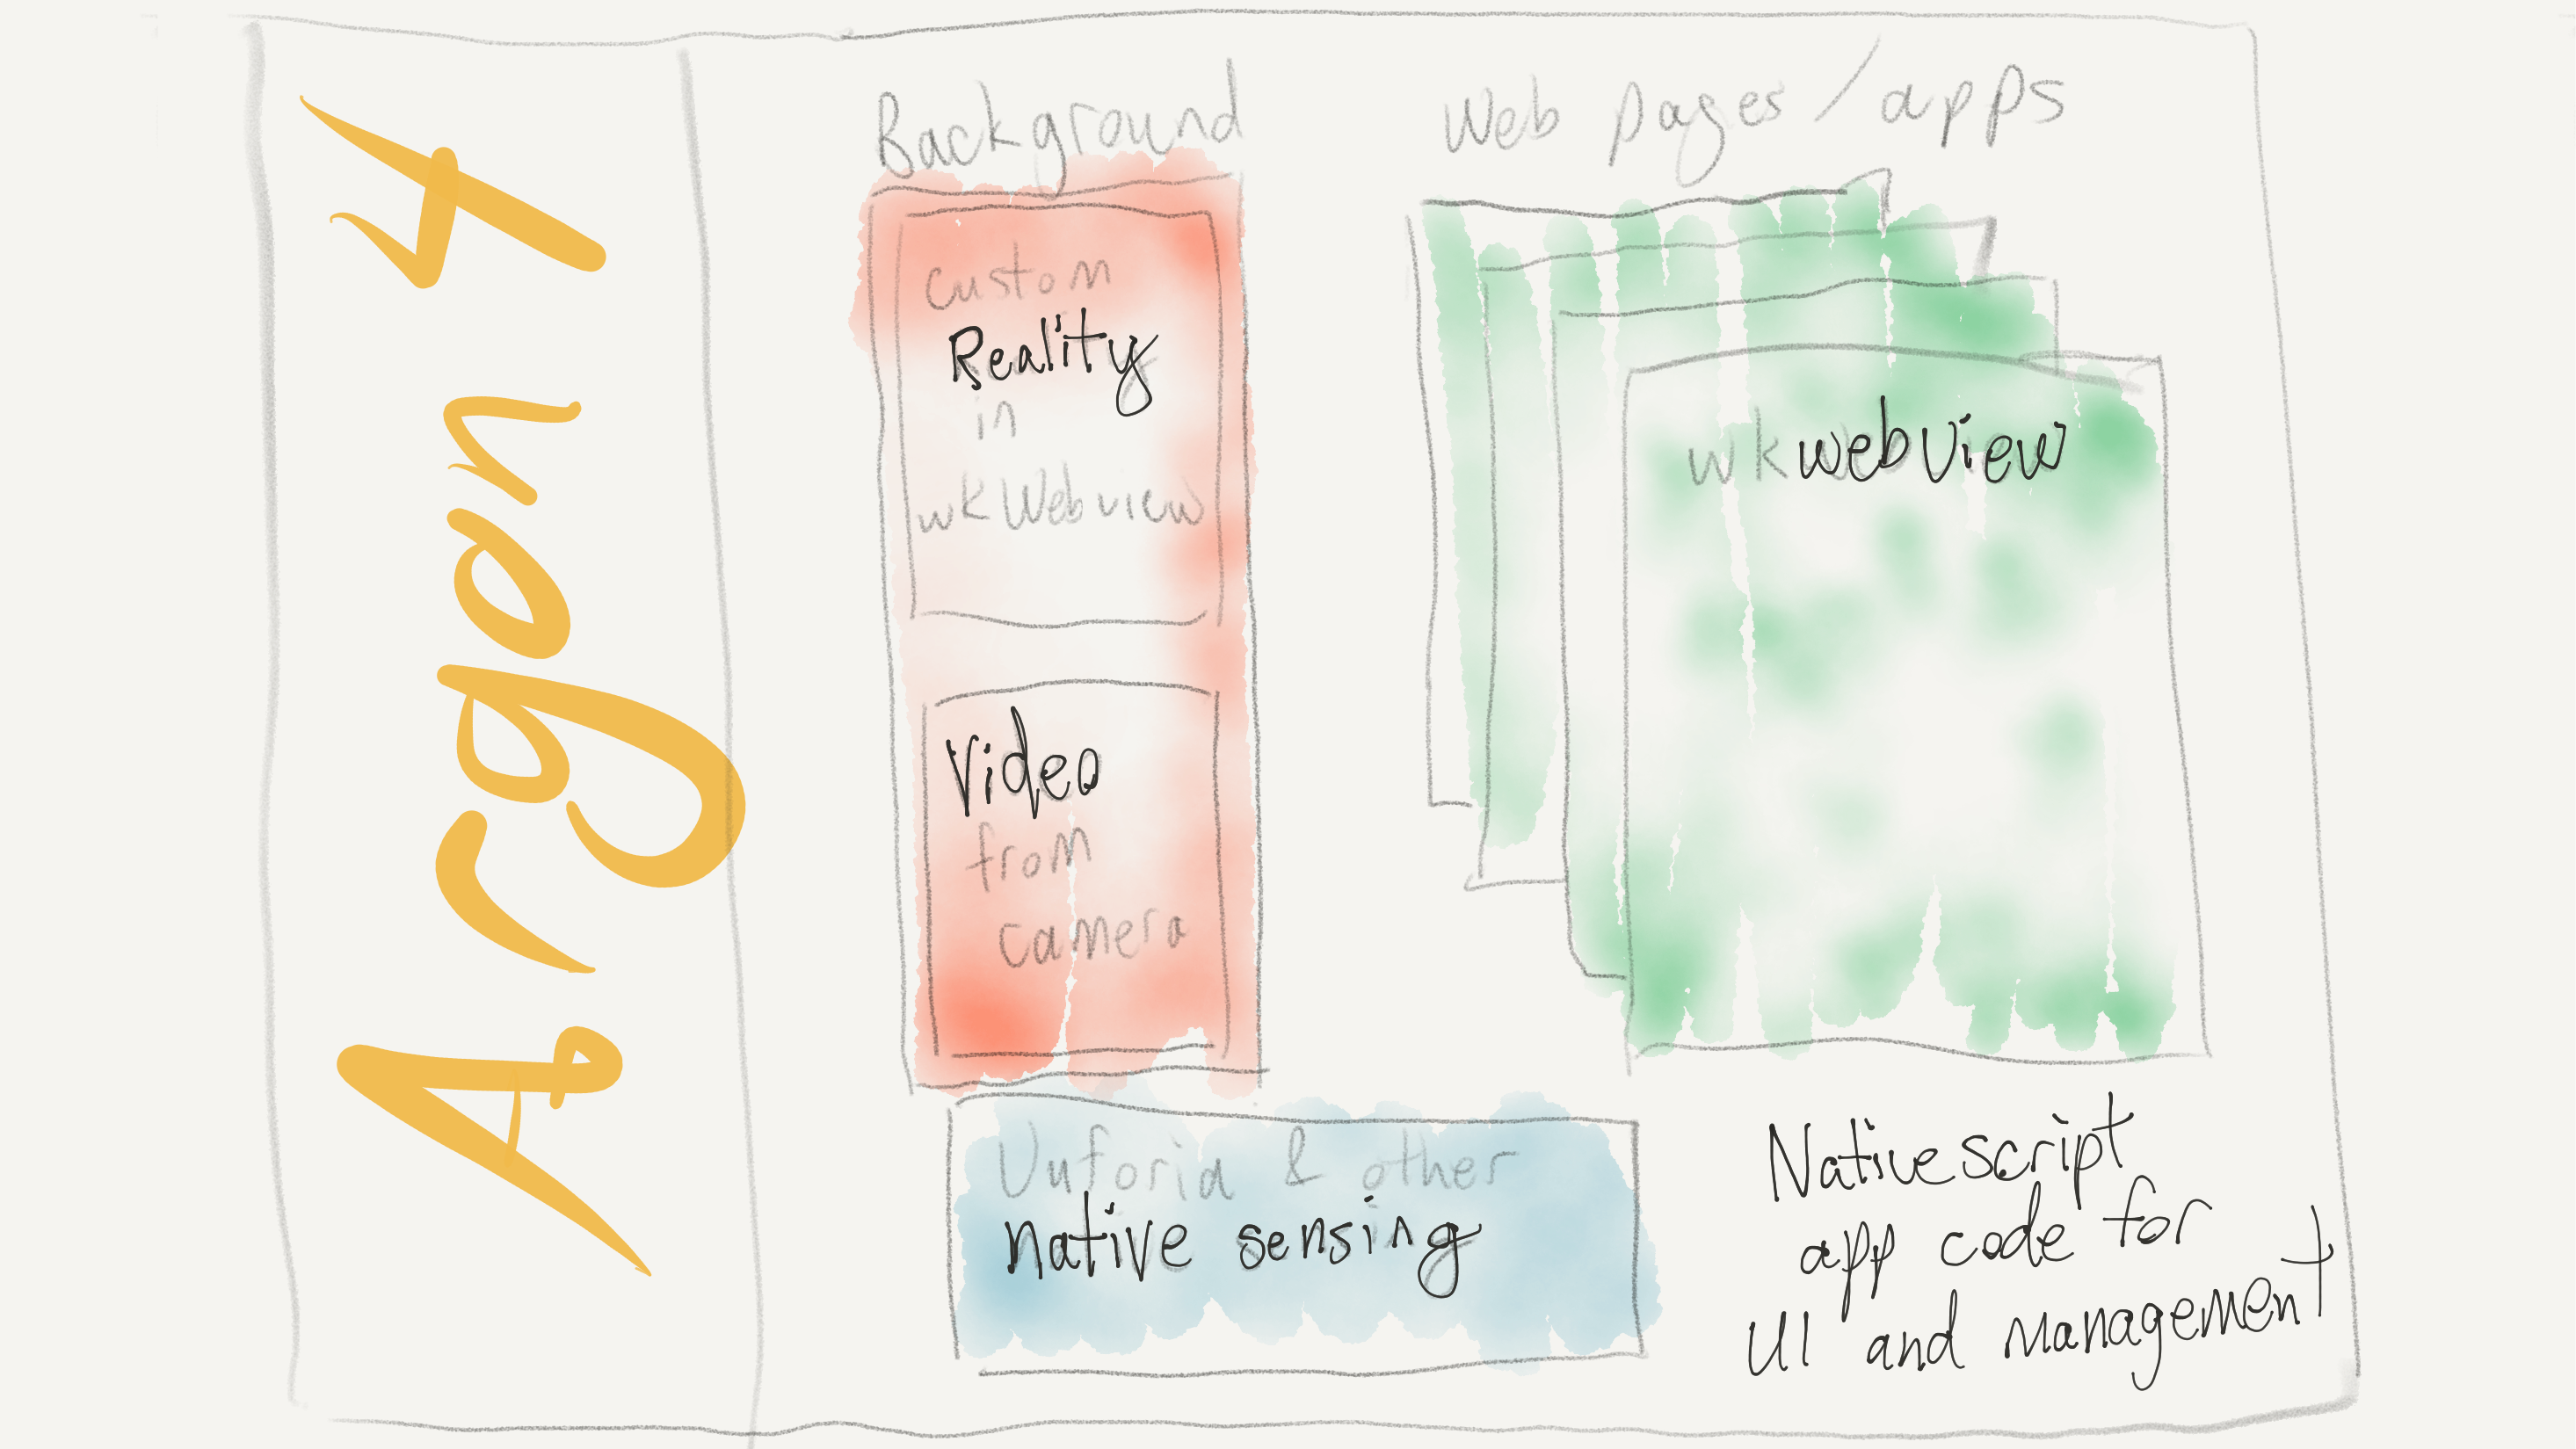 Argon 4
Background
custom
Reality
in
wkWebview
Video
from
camera
Web pages/apps
wkwebview
Vuforia & other
native sensing
Nativescript
app code for
UI and management